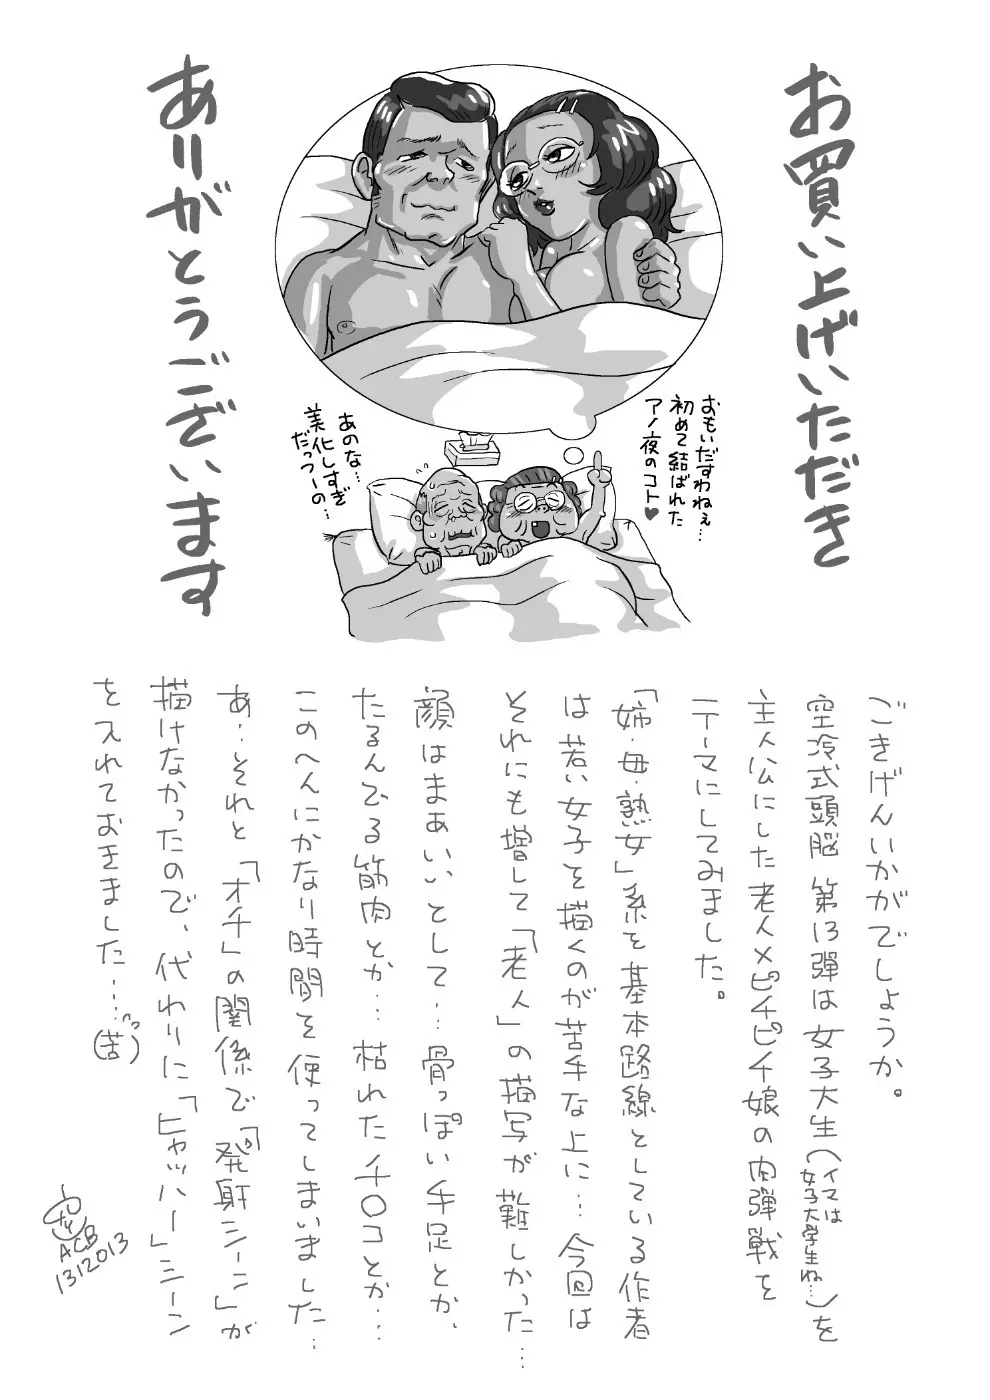 お買い上げいただき
ありがとうございます
おもいだすわねぇ…
初めて結ばれた
アノ夜のコト♥
あのな…
美化しすぎ
だっつーの…
ごきげんいかがでしょうか。
空冷式頭脳 第13弾は女子大生(イマは女子大学生ね…)を
主人公にした老人×ピチピチ娘の肉弾戦を
テーマにしてみました。
「姉・母・熟女」系を基本路線としている作者
は若い女子を描くのが苦手な上に…今回は
それにも増して「老人」の描写が難しかった…
顔はまぁいいとして…骨っぽい手足とか、
たるんでる筋肉とか…枯れたチ○コとか…
このへんにかなり時間を使ってしまいました…
あ…それと「オチ」の関係で「発射シーン」が
描けなかったので、代わりに「ヒャッハー」シーン
を入れておきました…(苦)
ACB
1312013